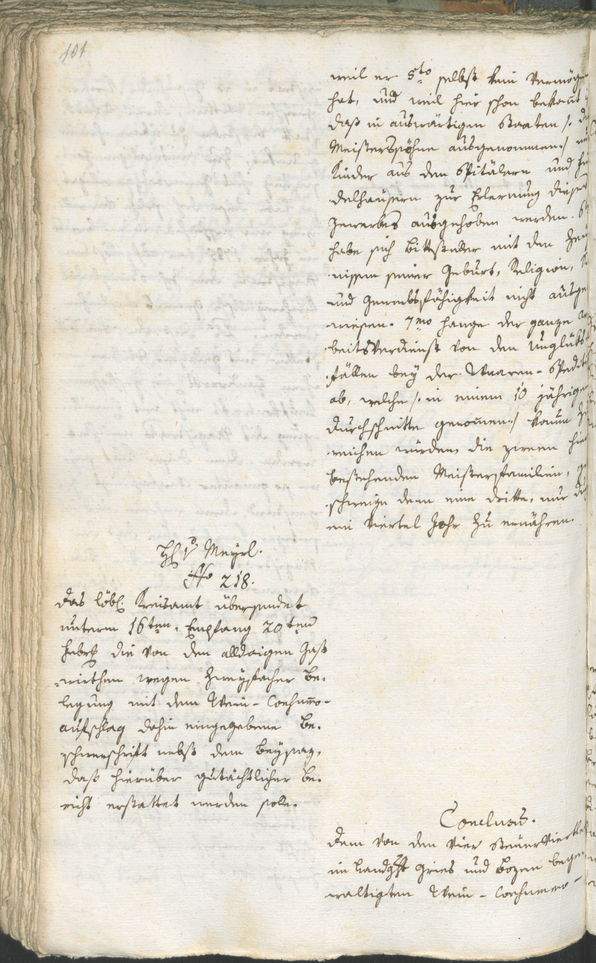 101
weil er 5to selbst kein Vermöge
hat, und weil hier schon bekannt
daß in auswärtigen Staaten /: die
Meisterssöhne ausgenommen :/ nur
Kinder aus den Spitälern und Fin
delhäusern zur Erlernung dieses
Gewerbes ausgehoben werden. 6to
habe sich Bittsteller mit den Zeug
nissen seiner Geburt, Religion,
und Gewerbsfähigkeit nicht ausge
wiesen. 7mo hange der ganze Ar
beitsverdienst von den Unglücks
fällen bey der Waaren-Spedit
ab, welche /: in einem 10 jährigen
Durchschnitte genommen :/ kaum hin
reichen würden, die zween hier
bestehenden Meistersfamilien, ge
schweige denn eine dritte, nur durch
ein Viertel Jahr zu ernähren.
Meyrl.
No 218.
Das löbl. Kreisamt übersendet
unterm 16ten, Empfang 20ten
die von den alldaigen Gast
wirthen wegen zweyfacher Be-
legung mit dem Wein-Consumo-
aufschlag dahin eingegebene Be-
schwerschrift nebst dem Beysaz,
daß hierüber gutächtlicher Be-
richt erstattet werden solle.
Conclusum.
Dem von den vier Steuervierteln
im Landght Gries und Bozen bege
waltigten Wein-Consumo-